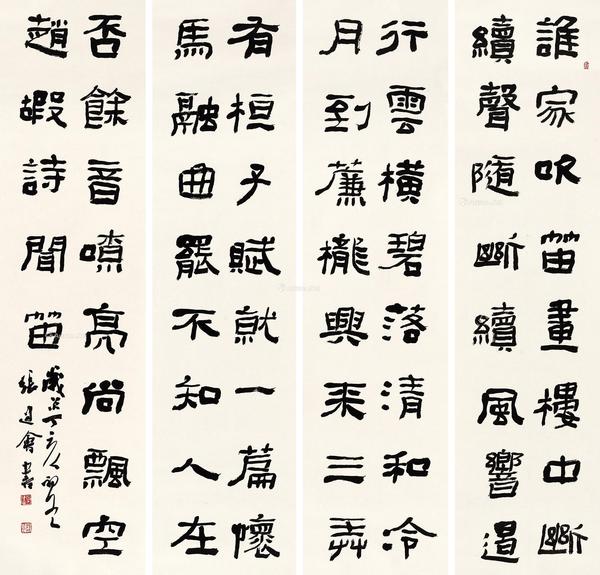 誰家吹笛畫樓中斷
續聲隨斷續風響遏
行雲橫碧落清和冷
月到簾櫳興来三弄
有桓子賦就一篇懷
馬融曲罷不知人在
否餘音嘹亮尚飄空
趙嘏詩聞笛
歲丁亥
張書